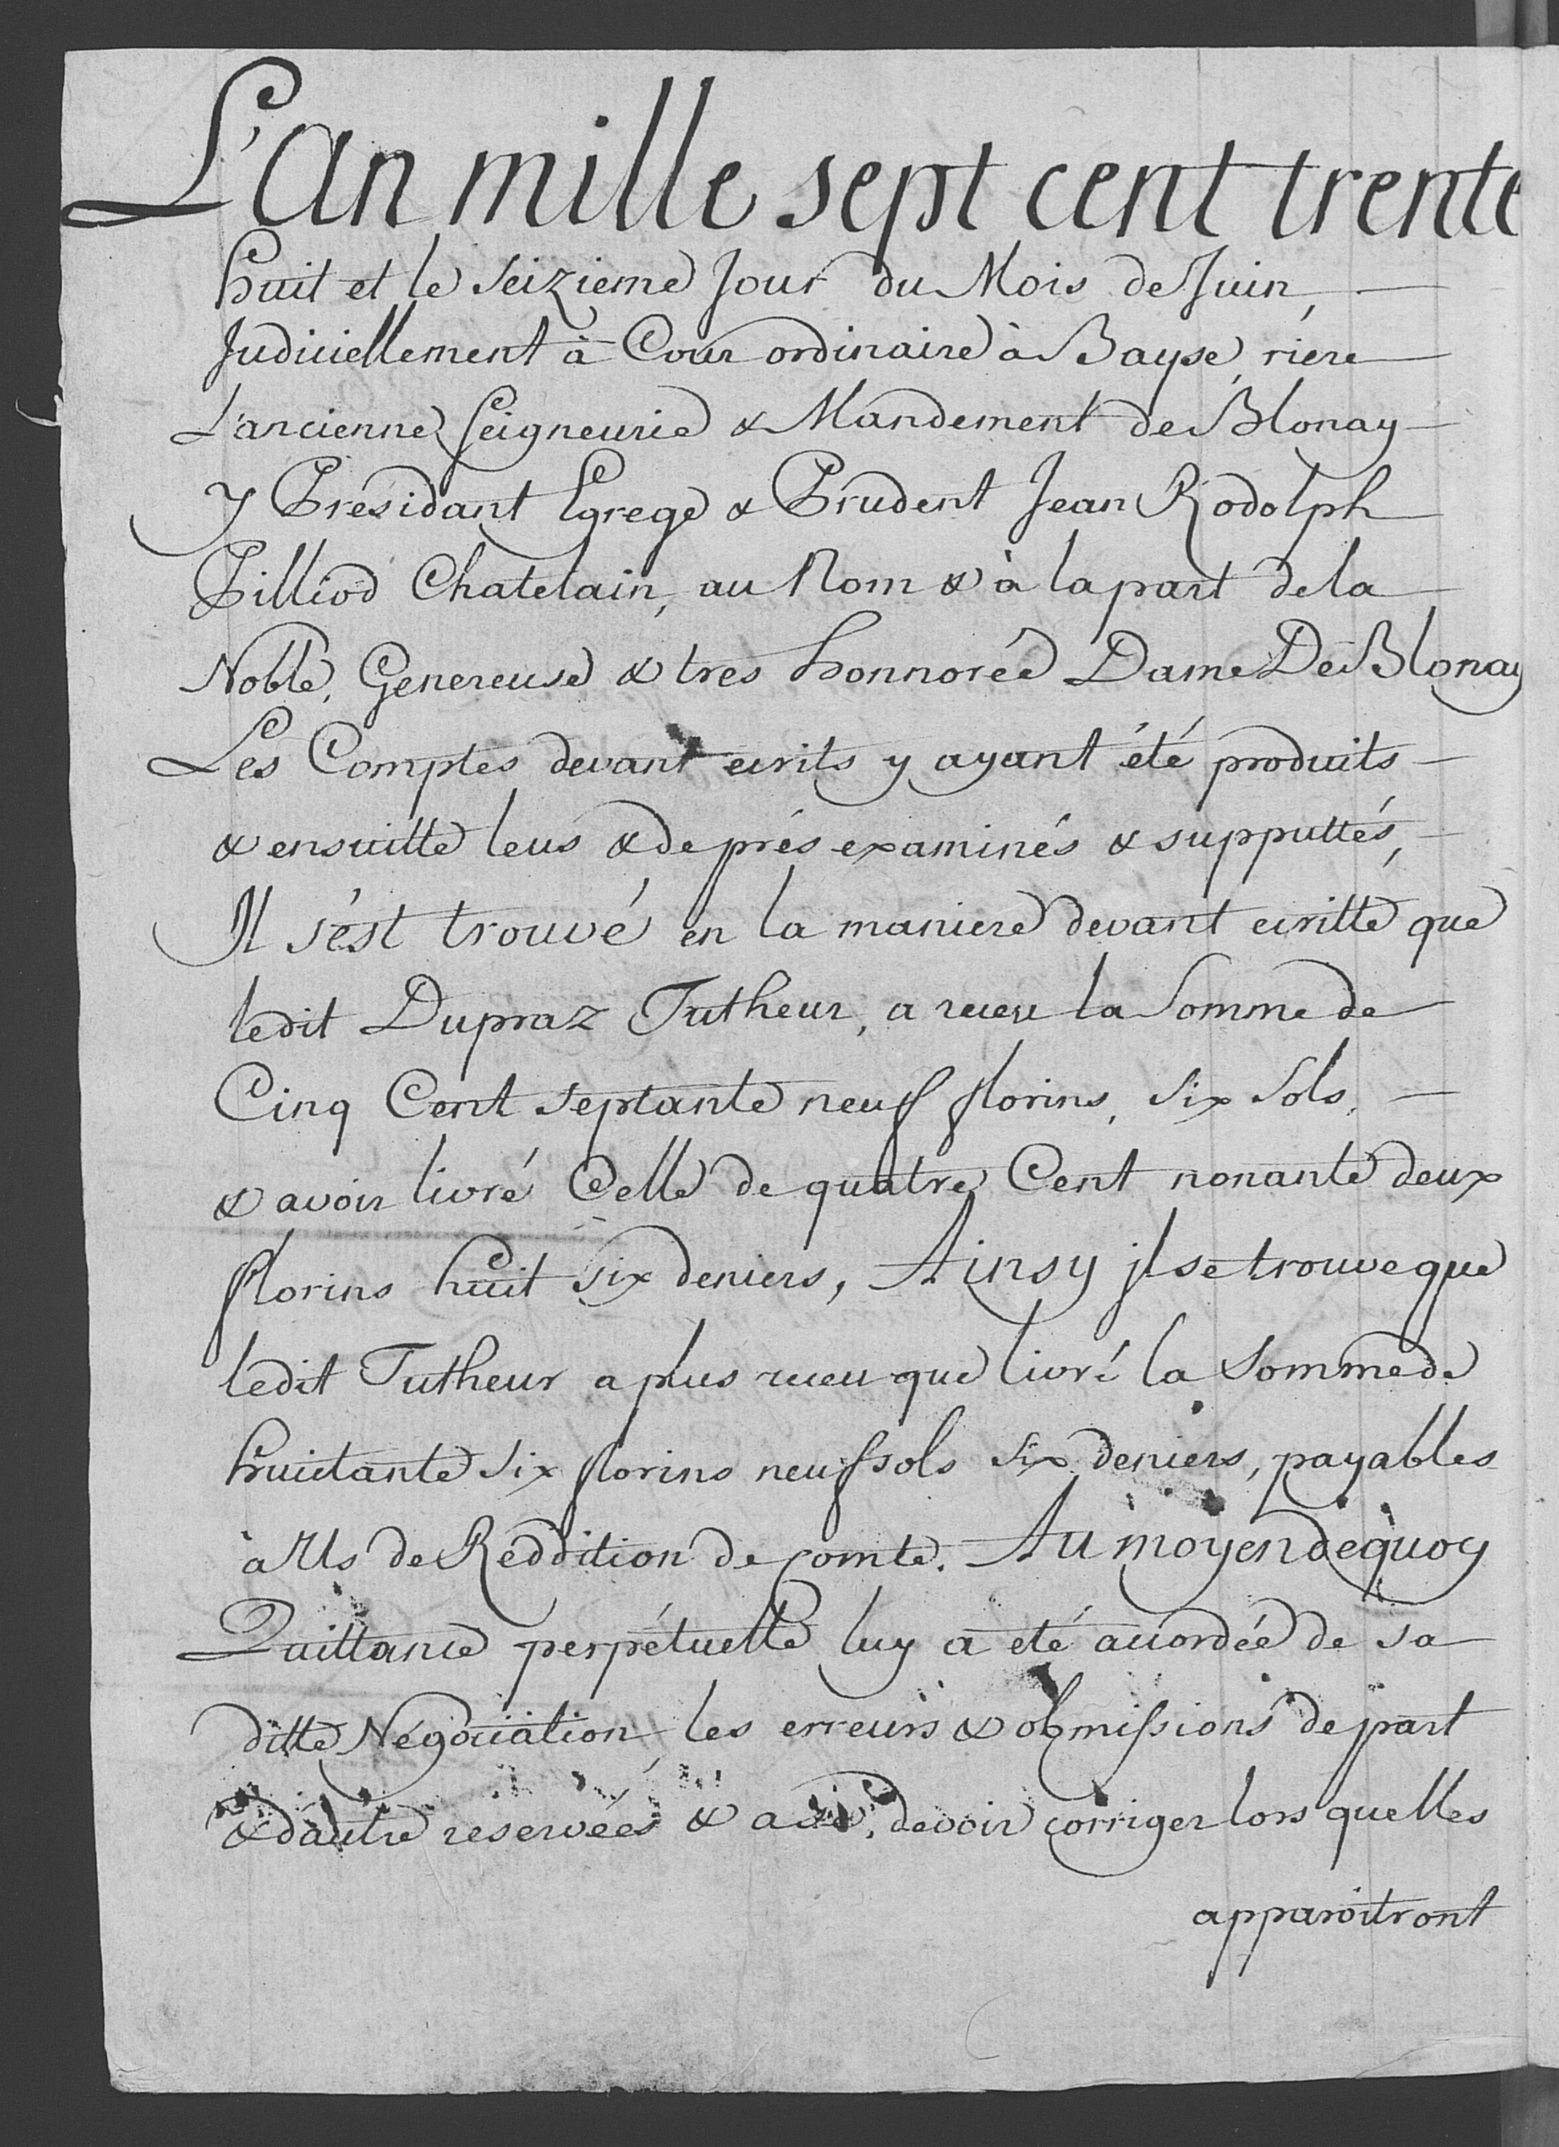 L'An mille sept cent trente
huit et le seizieme Jour du Mois de Juin,
Judiciellement à Cour ordinaire à Bayse, riere
L'ancienne Seigneurie & Mandement de Blonay
Y Présidant Egrege & Prudent Jean Rodolph
Pilliod Chatelain, au Nom & à la part de la
Noble, Genereuse & tres honnorée Dame De Blonay
Les Comptes devant ecrits y ayant été produits
& ensuitte leus & de prés examinés & supputtés,
Il s'est trouvé en la maniere devant ecritte que
ledit Dupraz Tutheur, a receu la Somme de
Cinq Cent septante neuf florins, six sols,
& avoir livré Celle de quatre Cent nonante deux
florins huit six deniers, Ainsy jl se trouve que
ledit Tutheur a plus receu que livré la Somme de
huictante six florins neuf sols six deniers, payables
à Us de Reddition de comte. Au moyen de quoy
Quittance perpétuelle luy a été accordée de sa
ditte Négociation, les erreurs & obmissions de part
& d'autre reservées & a devoir corriger lors quelles
apparoitront